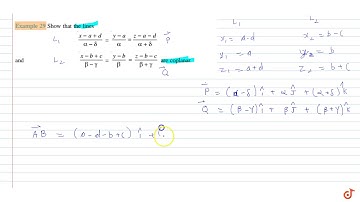 Example 29 Show that the lines
L₁ (x-a+d)/(α-δ) = (y-a)/α = (z-a-d)/(α+δ) P⃗
and L₂ (x-b+c)/(β-γ) = (y-b)/β = (z-b-c)/(β+γ) are coplanar. Q⃗
L₁ L₂
x₁ = a-d x₂ = b-c
y₁ = a y₂ = b
z₁ = a+d z₂ = b+c
P⃗ = (α-δ)î + αĵ + (α+δ)k̂
Q⃗ = (β-γ)î + βĵ + (β+γ)k̂
AB⃗ = (a-d-b+c) î + (